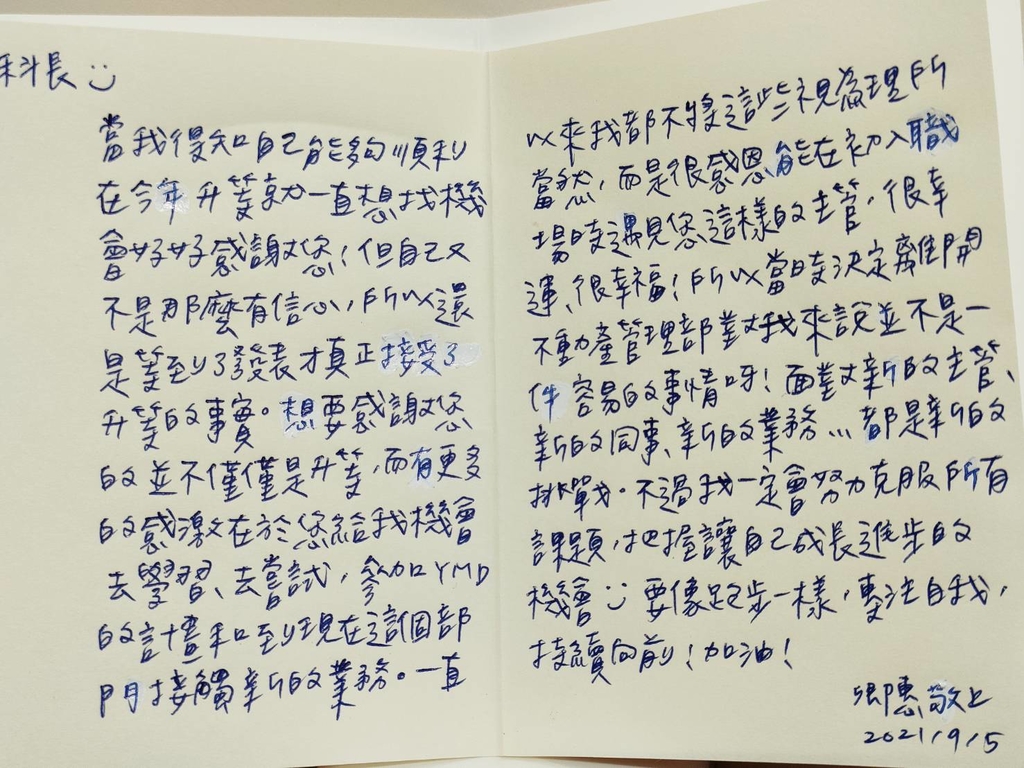 科長 :)
當我得知自己能夠順利
在今年升等就一直想找機
會好好感謝您！但自己又
不是那麼有信心，所以還
是等到了發表才真正接受了
升等的事實。想要感謝您
的並不僅僅是升等，而有更多
的感激在於您給我機會
去學習、去嘗試，參加YMD
的計畫和到現在這個部
門接觸新的業務。一直
以來我都不將這些視為理所
當然，而是很感恩能在初入職
場時遇見您這樣的主管，很幸
運、很幸福！所以當時決定離開
不動產管理部對我來說並不是一
件容易的事情呀！面對新的主管、
新的同事、新的業務...都是新的
挑戰。不過我一定會努力克服所有
課題，把握讓自己成長進步的
機會 :) 要像跑步一樣，專注自我，
持續向前！加油！
敬上
2021/9/5